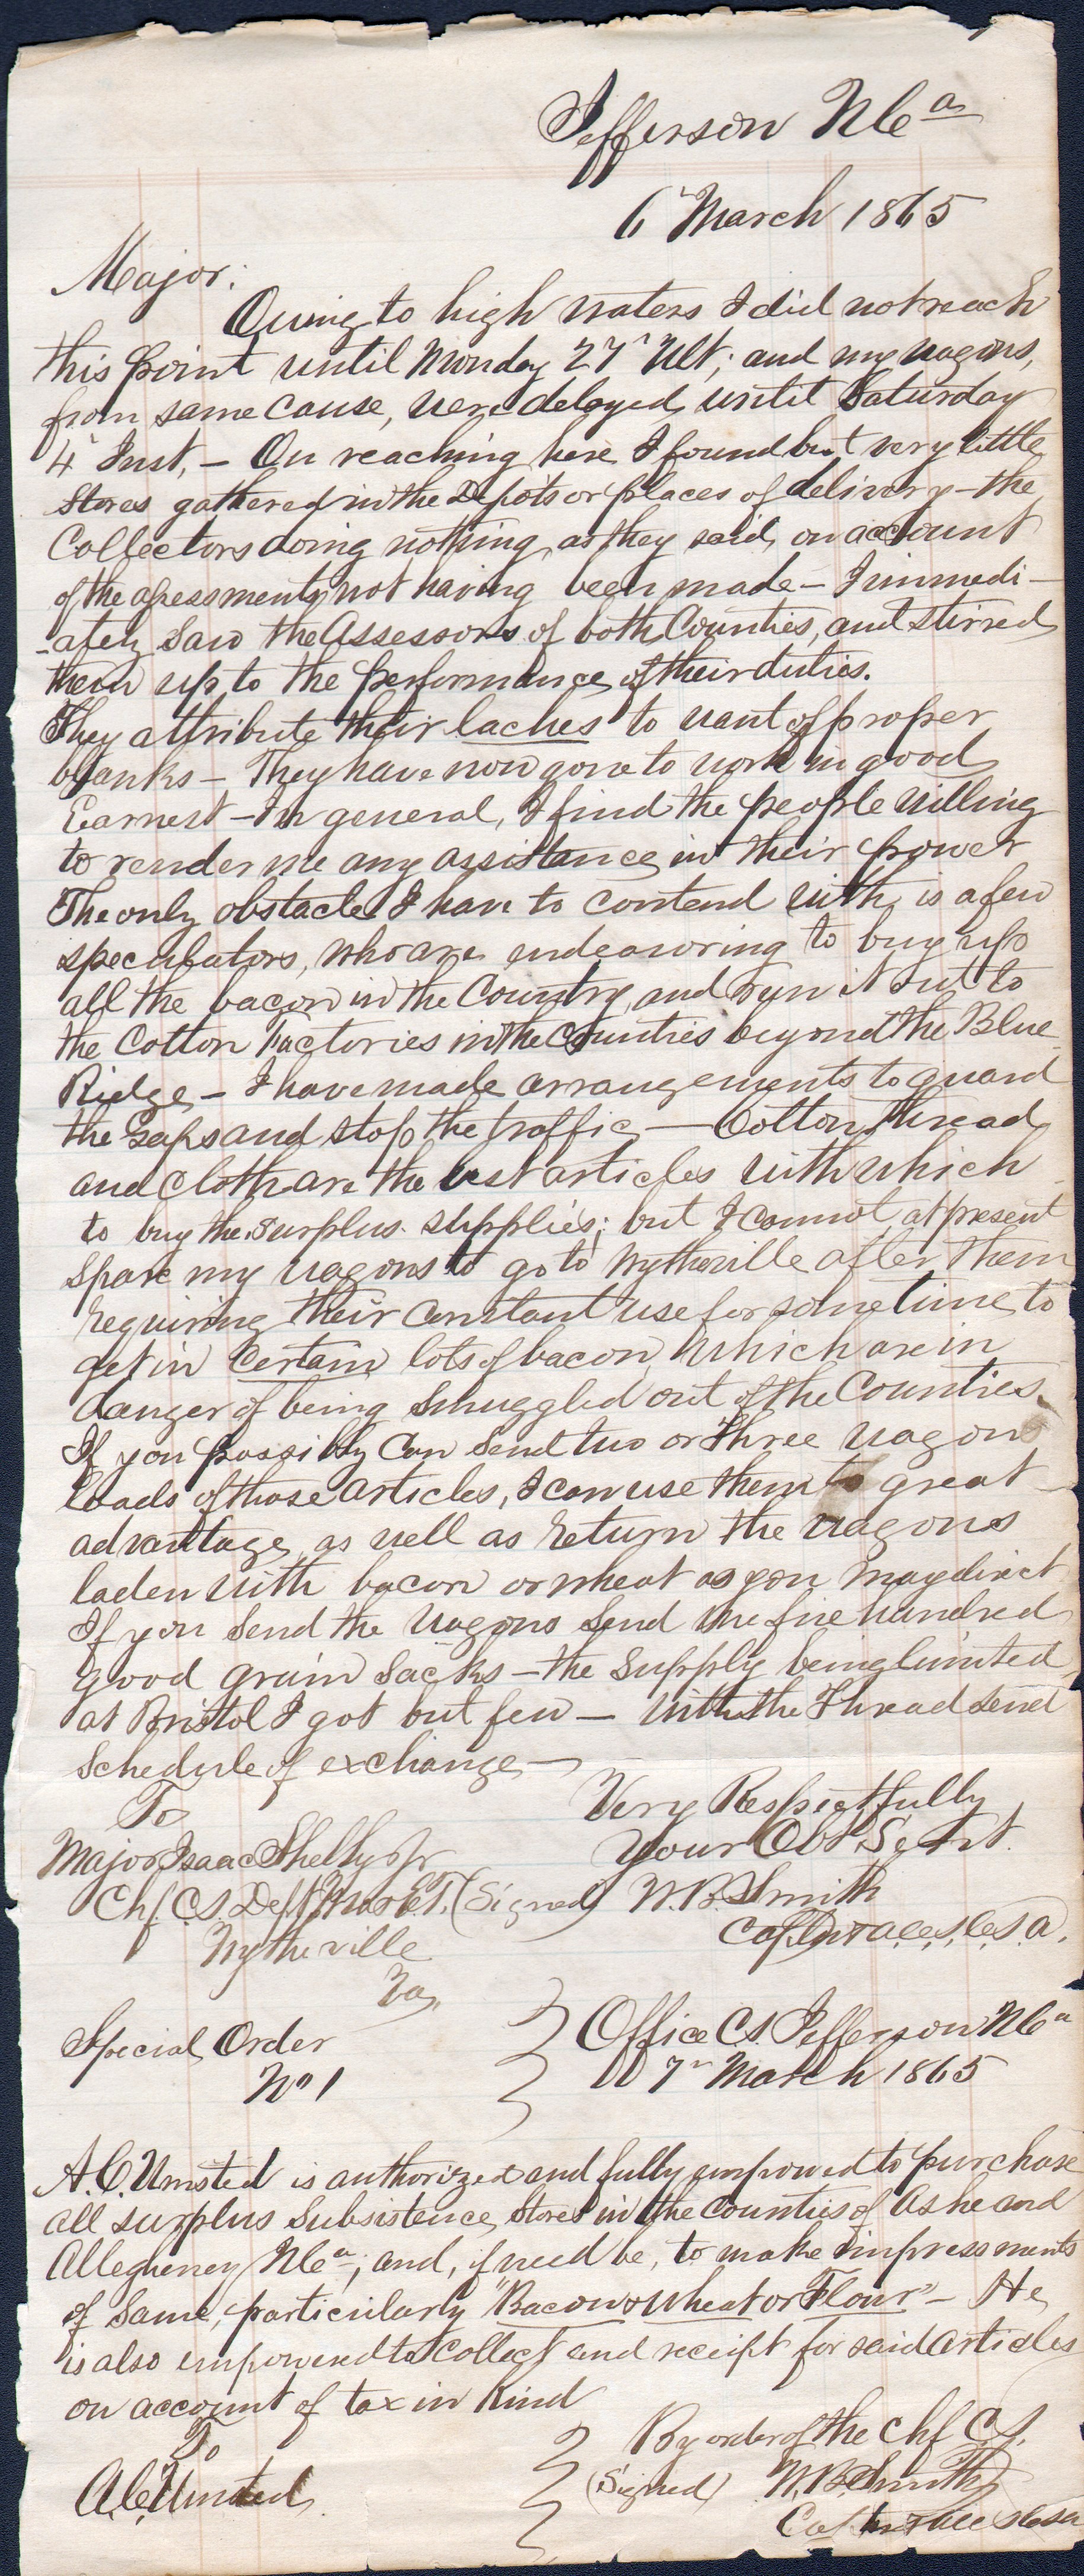 Jefferson N Ca
6" March 1865
Major:
Owing to high waters I did not reach
this point until Monday 27" Ult; and my wagons,
from same cause, were delayed until Saturday
4" Inst, — On reaching here I found but very little
stores gathered in the Depots or places of delivery — the
Collectors doing nothing, as they said, on account
of the assessments not having been made — I immedi-
-ately saw the Assessors of both Counties, and stirred
them up to the performance of their duties.
They attribute their laches to want of proper
blanks — They have now gone to work in good
Earnest — In general, I find the people willing
to render me any assistance in their power
The only obstacle I have to contend with, is a few
speculators, who are endeavoring to buy up
all the bacon in the Country, and run it out to
the Cotton Factories in the Counties beyond the Blue
Ridge — I have made arrangements to guard
the Gaps and stop the traffic — Cotton thread
and cloth are the best articles with which
to buy the surplus supplies; but I cannot at present
spare my wagons to go to Wytheville after them
requiring their constant use for some time to
get in certain lots of bacon which are in
danger of being smuggled out of the Counties.
If you possibly can send two or three wagon
loads of those articles, I can use them to great
advantage, as well as return the wagons
laden with bacon or wheat as you may direct
If you send the wagons send me five hundred
good grain sacks — the supply being limited
at Bristol I got but few — With the Thread send
schedule of exchange —
Very Respectfully
Your Obt Servt.
To
Major Isaac Shelby Jr
Chf C.S. Dept W.Va & E.T. (Signed) W.B. Smith
Capt & A.C.S. C.S.A.
Wytheville
Va,
Special Order
No 1
Office C.S. Jefferson N Ca
7" March 1865
A.C. Umsted is authorized and fully empowered to purchase
all surplus Subsistence Stores in the counties of Ashe and
Allegheney N Ca; and, if need be, to make impressments
of same, particularly "Bacon & Wheat or Flour" — He
is also empowered to collect and receipt for said articles
on account of tax in Kind
To
A.C. Umsted
By order of the Chf C.S.
(Signed) W.B. Smith
Capt